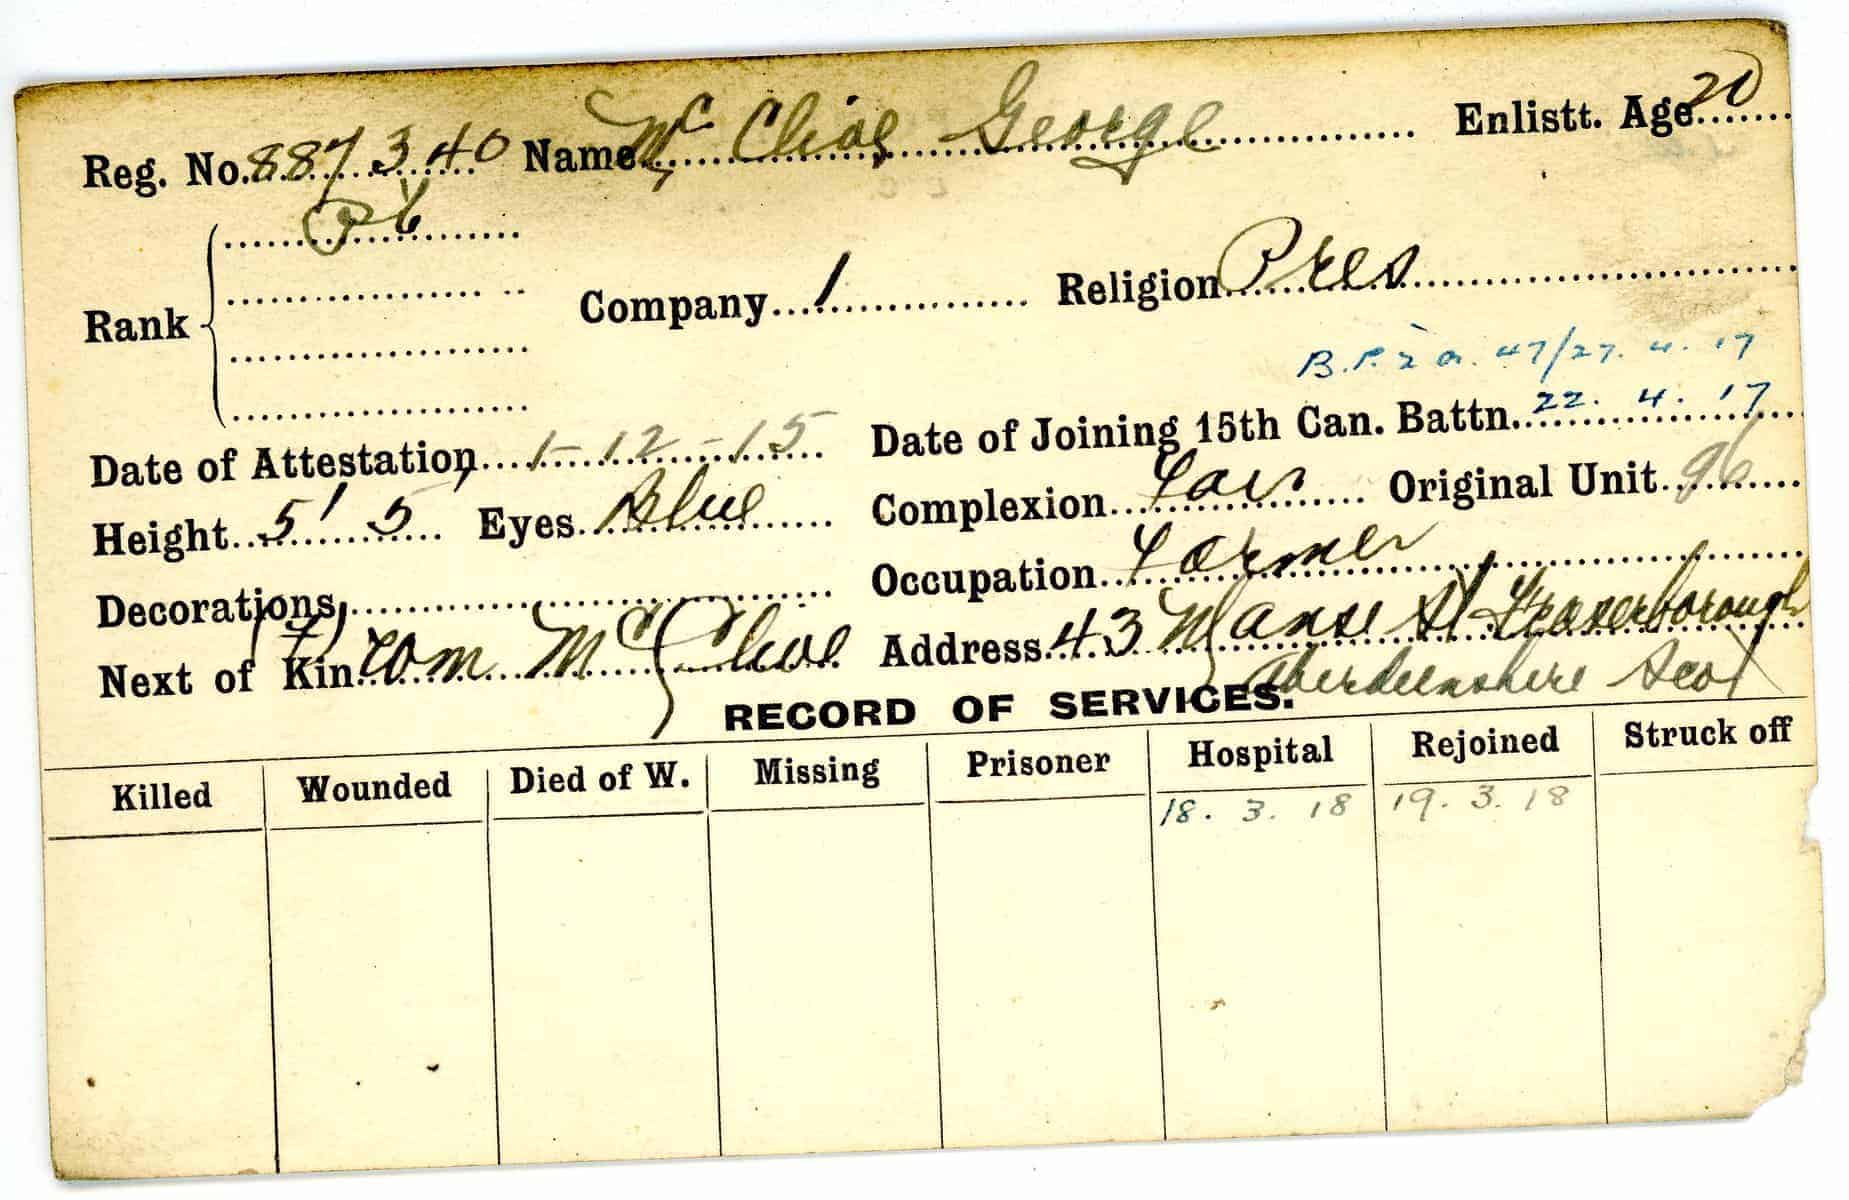 Reg. No. 887340 Name Mc Clive George Enlistt. Age 20
Rank Pte
Company 1 Religion Pres
47/27. 4. 17
Date of Attestation 1-12-15 Date of Joining 15th Can. Battn. 22. 4. 17
Height 5' 5 Eyes Blue Complexion Fair Original Unit 96
Decorations Occupation Farmer
Next of Kin (F) Tom Address 43 Manse St Fraserborough
Aberdeenshire Scot
RECORD OF SERVICES.
Killed Wounded Died of W. Missing Prisoner Hospital Rejoined Struck off
18. 3. 18 19. 3. 18